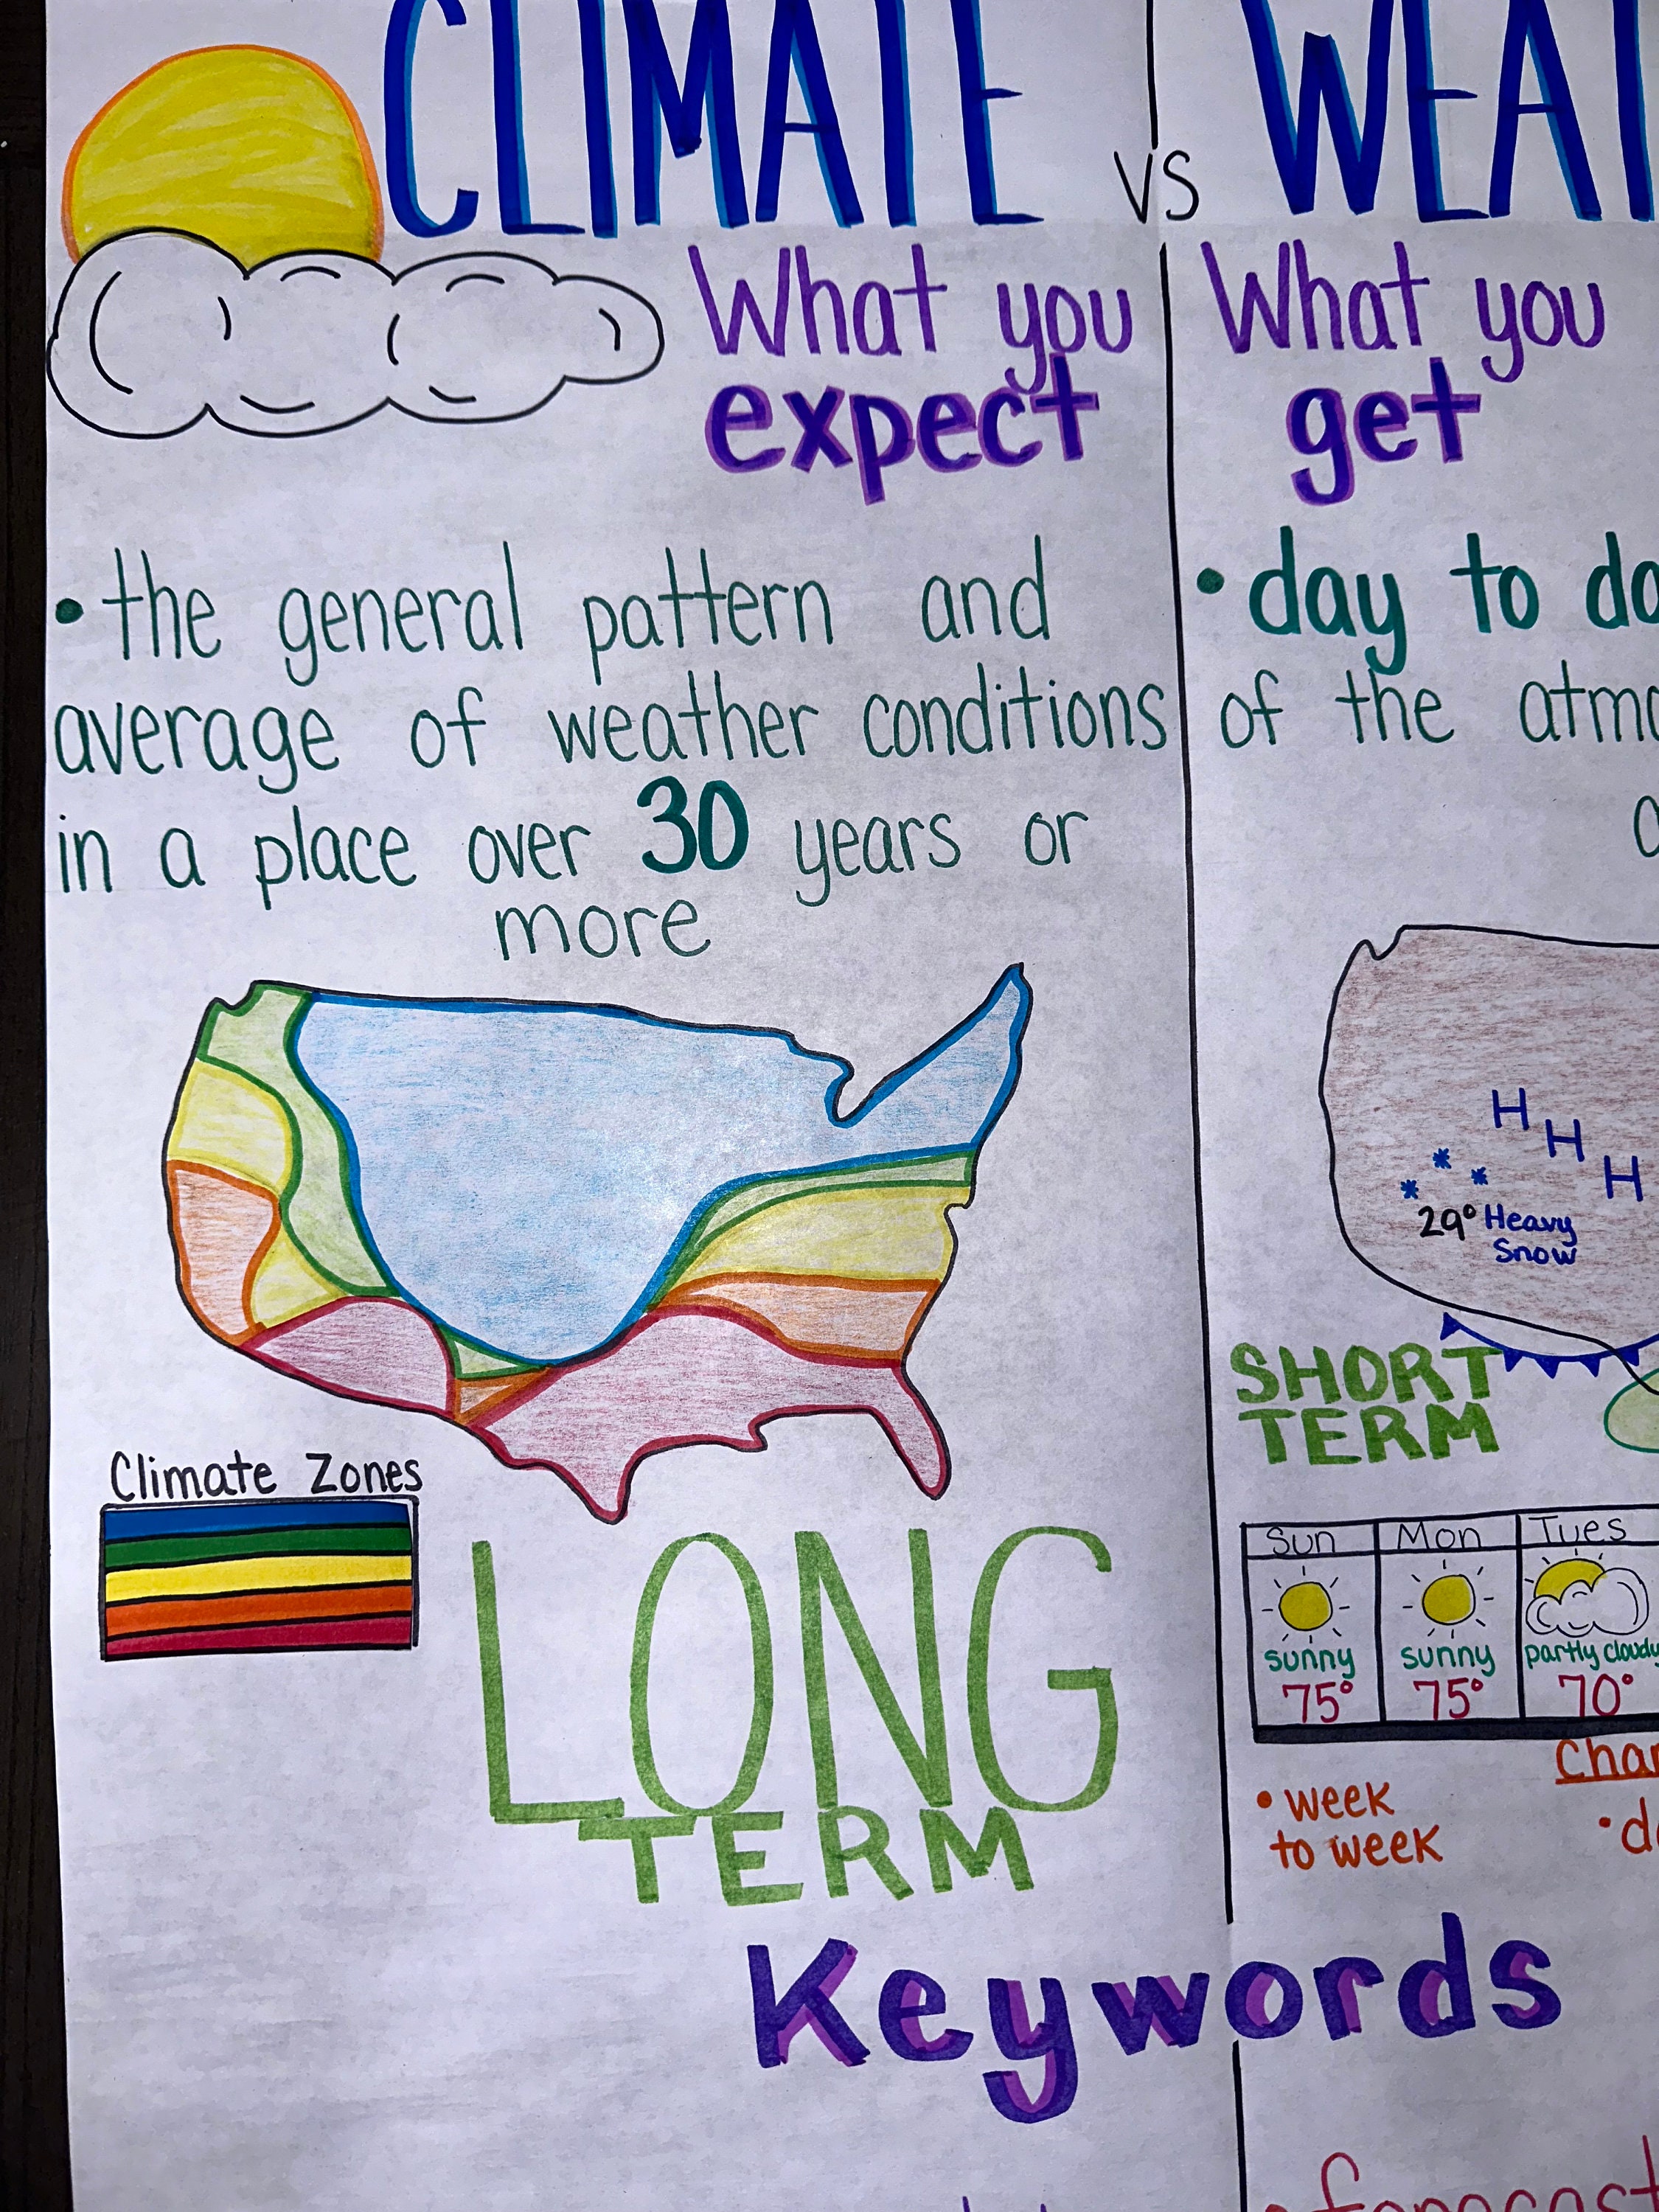 CLIMATE vs
What you
expect
• the general pattern and
average of weather conditions
in a place over 30 years or
more
Climate Zones
LONG
TERM
What you
get
• day to
of the
H
H
H
29° Heavy
Snow
SHORT
TERM
Sun Mon Tues
sunny sunny partly cloudy
75° 75° 70°
• week
to week
Keywords